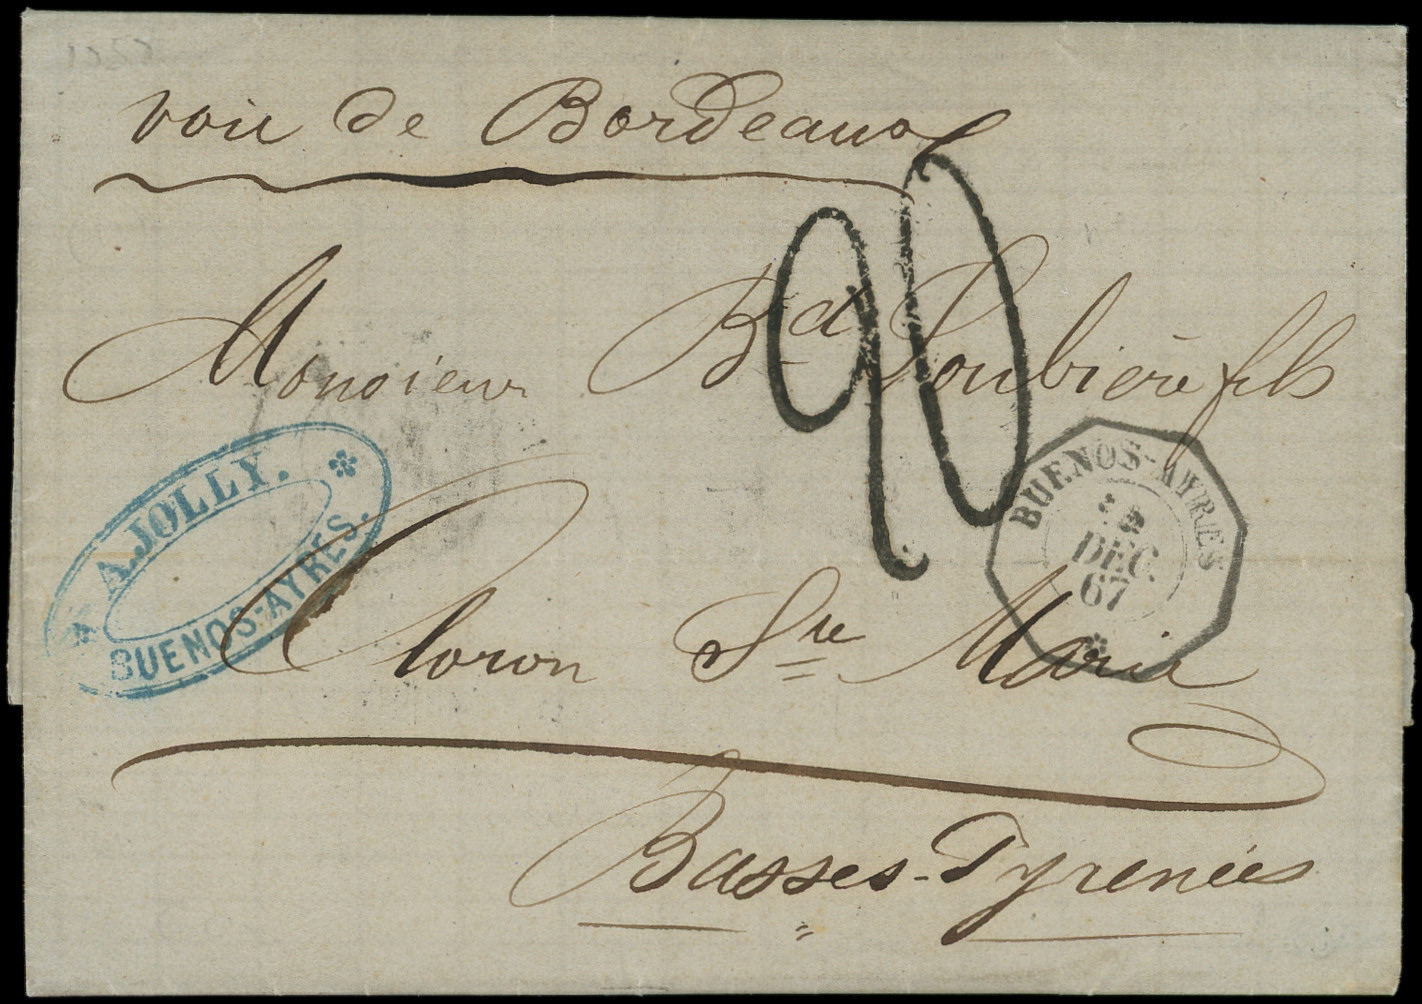 voie de Bordeaux
90
Monsieur Bd Loubière fils
A. JOLLY.
BUENOS-AYRES.
BUENOS-AYRES
DEC.
67
Oloron Ste Marie
Basses-Pyrenées